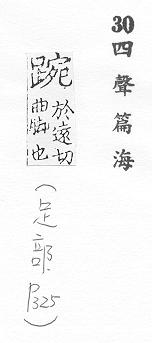 30四聲篇海
踠 於遠切
曲腳也
(足部.P325)